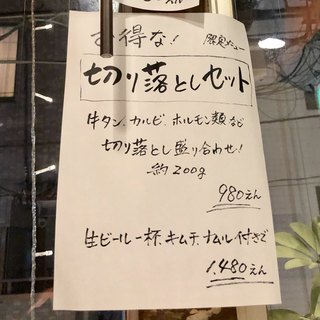 お得な! 限定メニュー
切り落としセット
牛タン、カルビ、ホルモン類など
切り落とし盛り合わせ!
約200g
980えん
生ビール一杯、キムチ、ナムル付きで
1,480えん